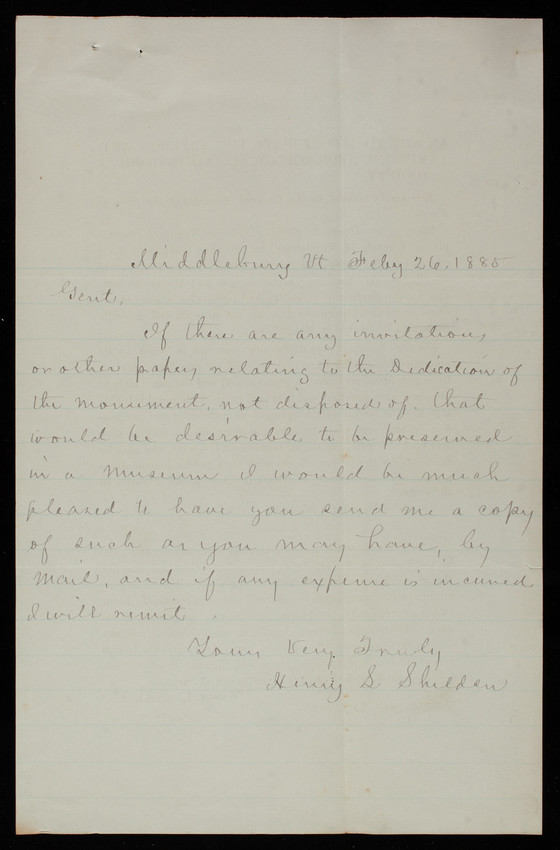 Middlebury Vt Feby 26. 1885
Gent.
If there are any invitations
or other papers relating to the Dedication of
the monument, not disposed of. that
would be desirable to be preserved
in a Museum I would be much
pleased to have you send me a copy
of such as you may have, by
mail, and if any expense is incured
I will remit.
Yours Very Truly
Henry L Sheldon